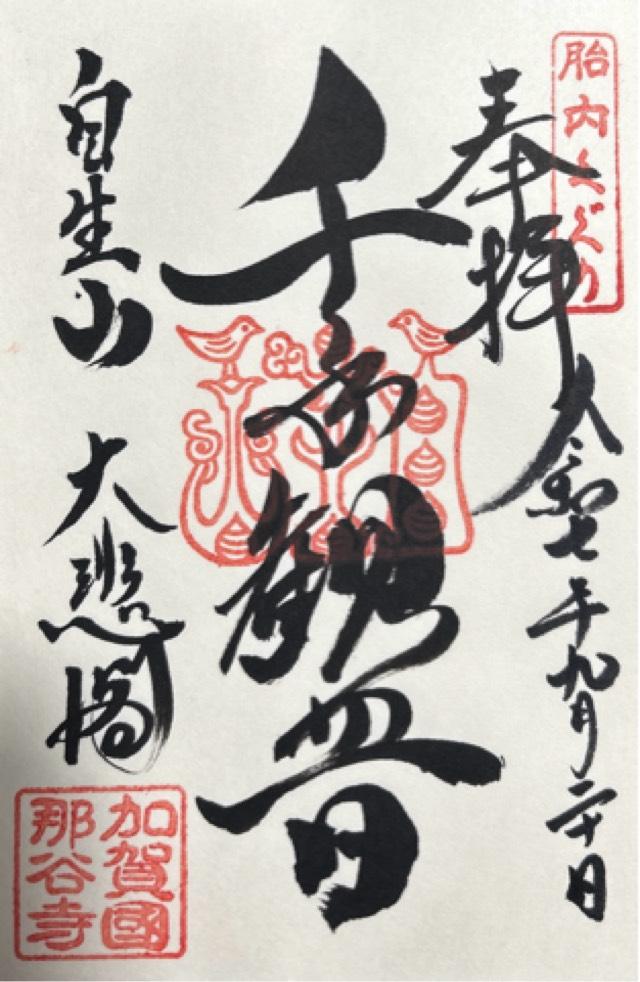 胎内くぐり
奉拝
令和七年九月二十日
千手観音
自生山
大悲閣
加賀國
那谷寺